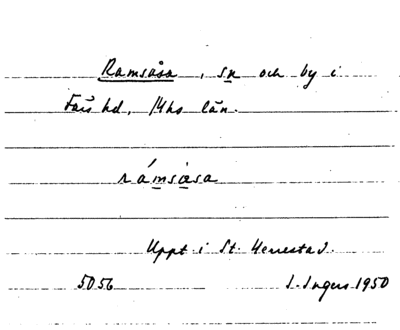 Ramsåsa, sn och by i
Färs hd, Mhs län.
rámsåsa
Uppt. i St. Herrestad.
5056 I. Ingers 1950